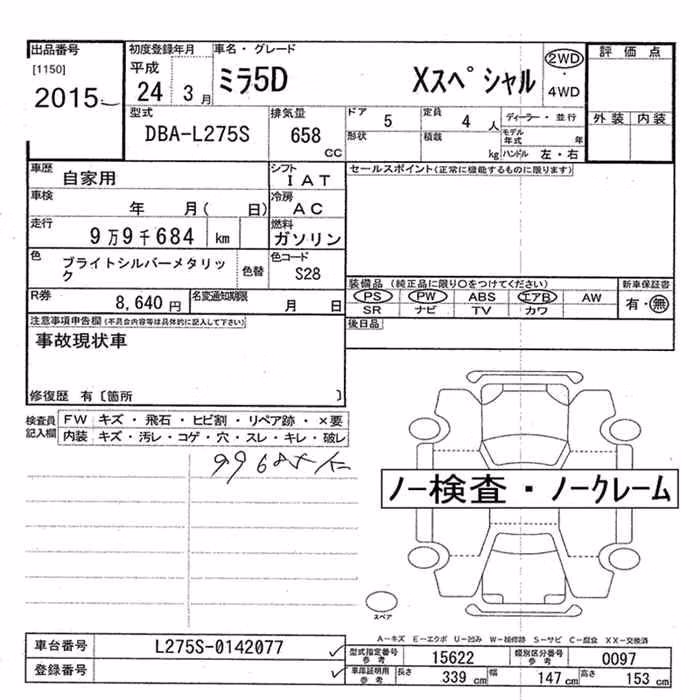 出品番号 初度登録年月 車名・グレード 評価点
[1150] 平成 ミラ5D Xスペシャル 2WD
2015 24 3月 ・ 4WD
型式 排気量 ドア 5 定員 4人 ディーラー・並行 外装 内装
DBA-L275S 658 CC 形状 積載 kg モデル年式 年
ハンドル 左・右
車歴 自家用 シフト IAT セールスポイント(正常に機能するものに限ります)
車検 年 月( 日) 冷房 AC
走行 9万9千684 km 燃料 ガソリン
色 ブライトシルバーメタリック 色替 色コード S28
装備品 (純正品に限り○をつけてください) 新車保証書
R券 8,640円 名変通知期限 月 日 PS PW ABS エアB AW 有・無
SR ナビ TV カワ
注意事項申告欄(不具合内容等は具体的に記入して下さい) 後日品
事故現状車
修復歴 有〔箇所 〕
検査員記入欄 FW キズ・飛石・ヒビ割・リペア跡・×要
内装 キズ・汚レ・コゲ・穴・スレ・キレ・破レ
ノー検査・ノークレーム
スペア
A-キズ E-エクボ U-凹み W-補修跡 S-サビ C-腐食 XX-交換済
車台番号 L275S-0142077 型式指定番号 参考 15622 類別区分番号 参考 0097
登録番号 車庫証明用 参考 長さ 339 cm 幅 147 cm 高さ 153 cm